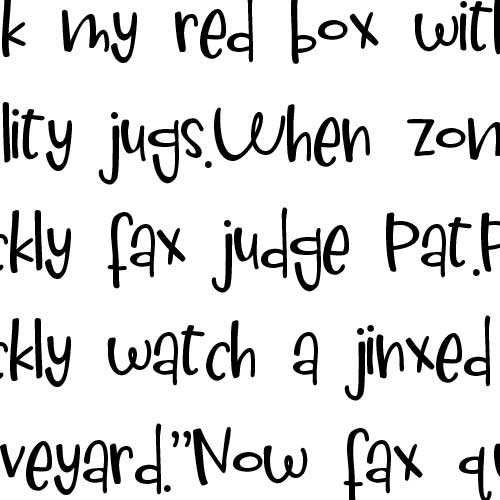 k my red box with
lity jugs.When zom
ckly fax judge Pat.P
ckly watch a jinxed
veyard."Now fax qu